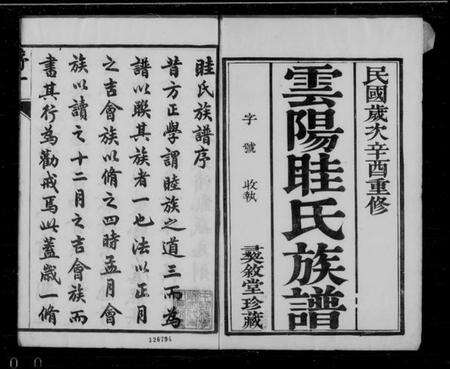 民國歲次辛酉重修
雲陽眭氏族譜
字號收執
敘堂珍藏
眭氏族譜序
昔方正學謂睦族之道三而為
譜以聯其族者一也法以正月
之吉會族以脩之四時孟月會
族以讀之十二月之吉會族而
書其行為勸戒焉此蓋歲一脩
126794
0 0